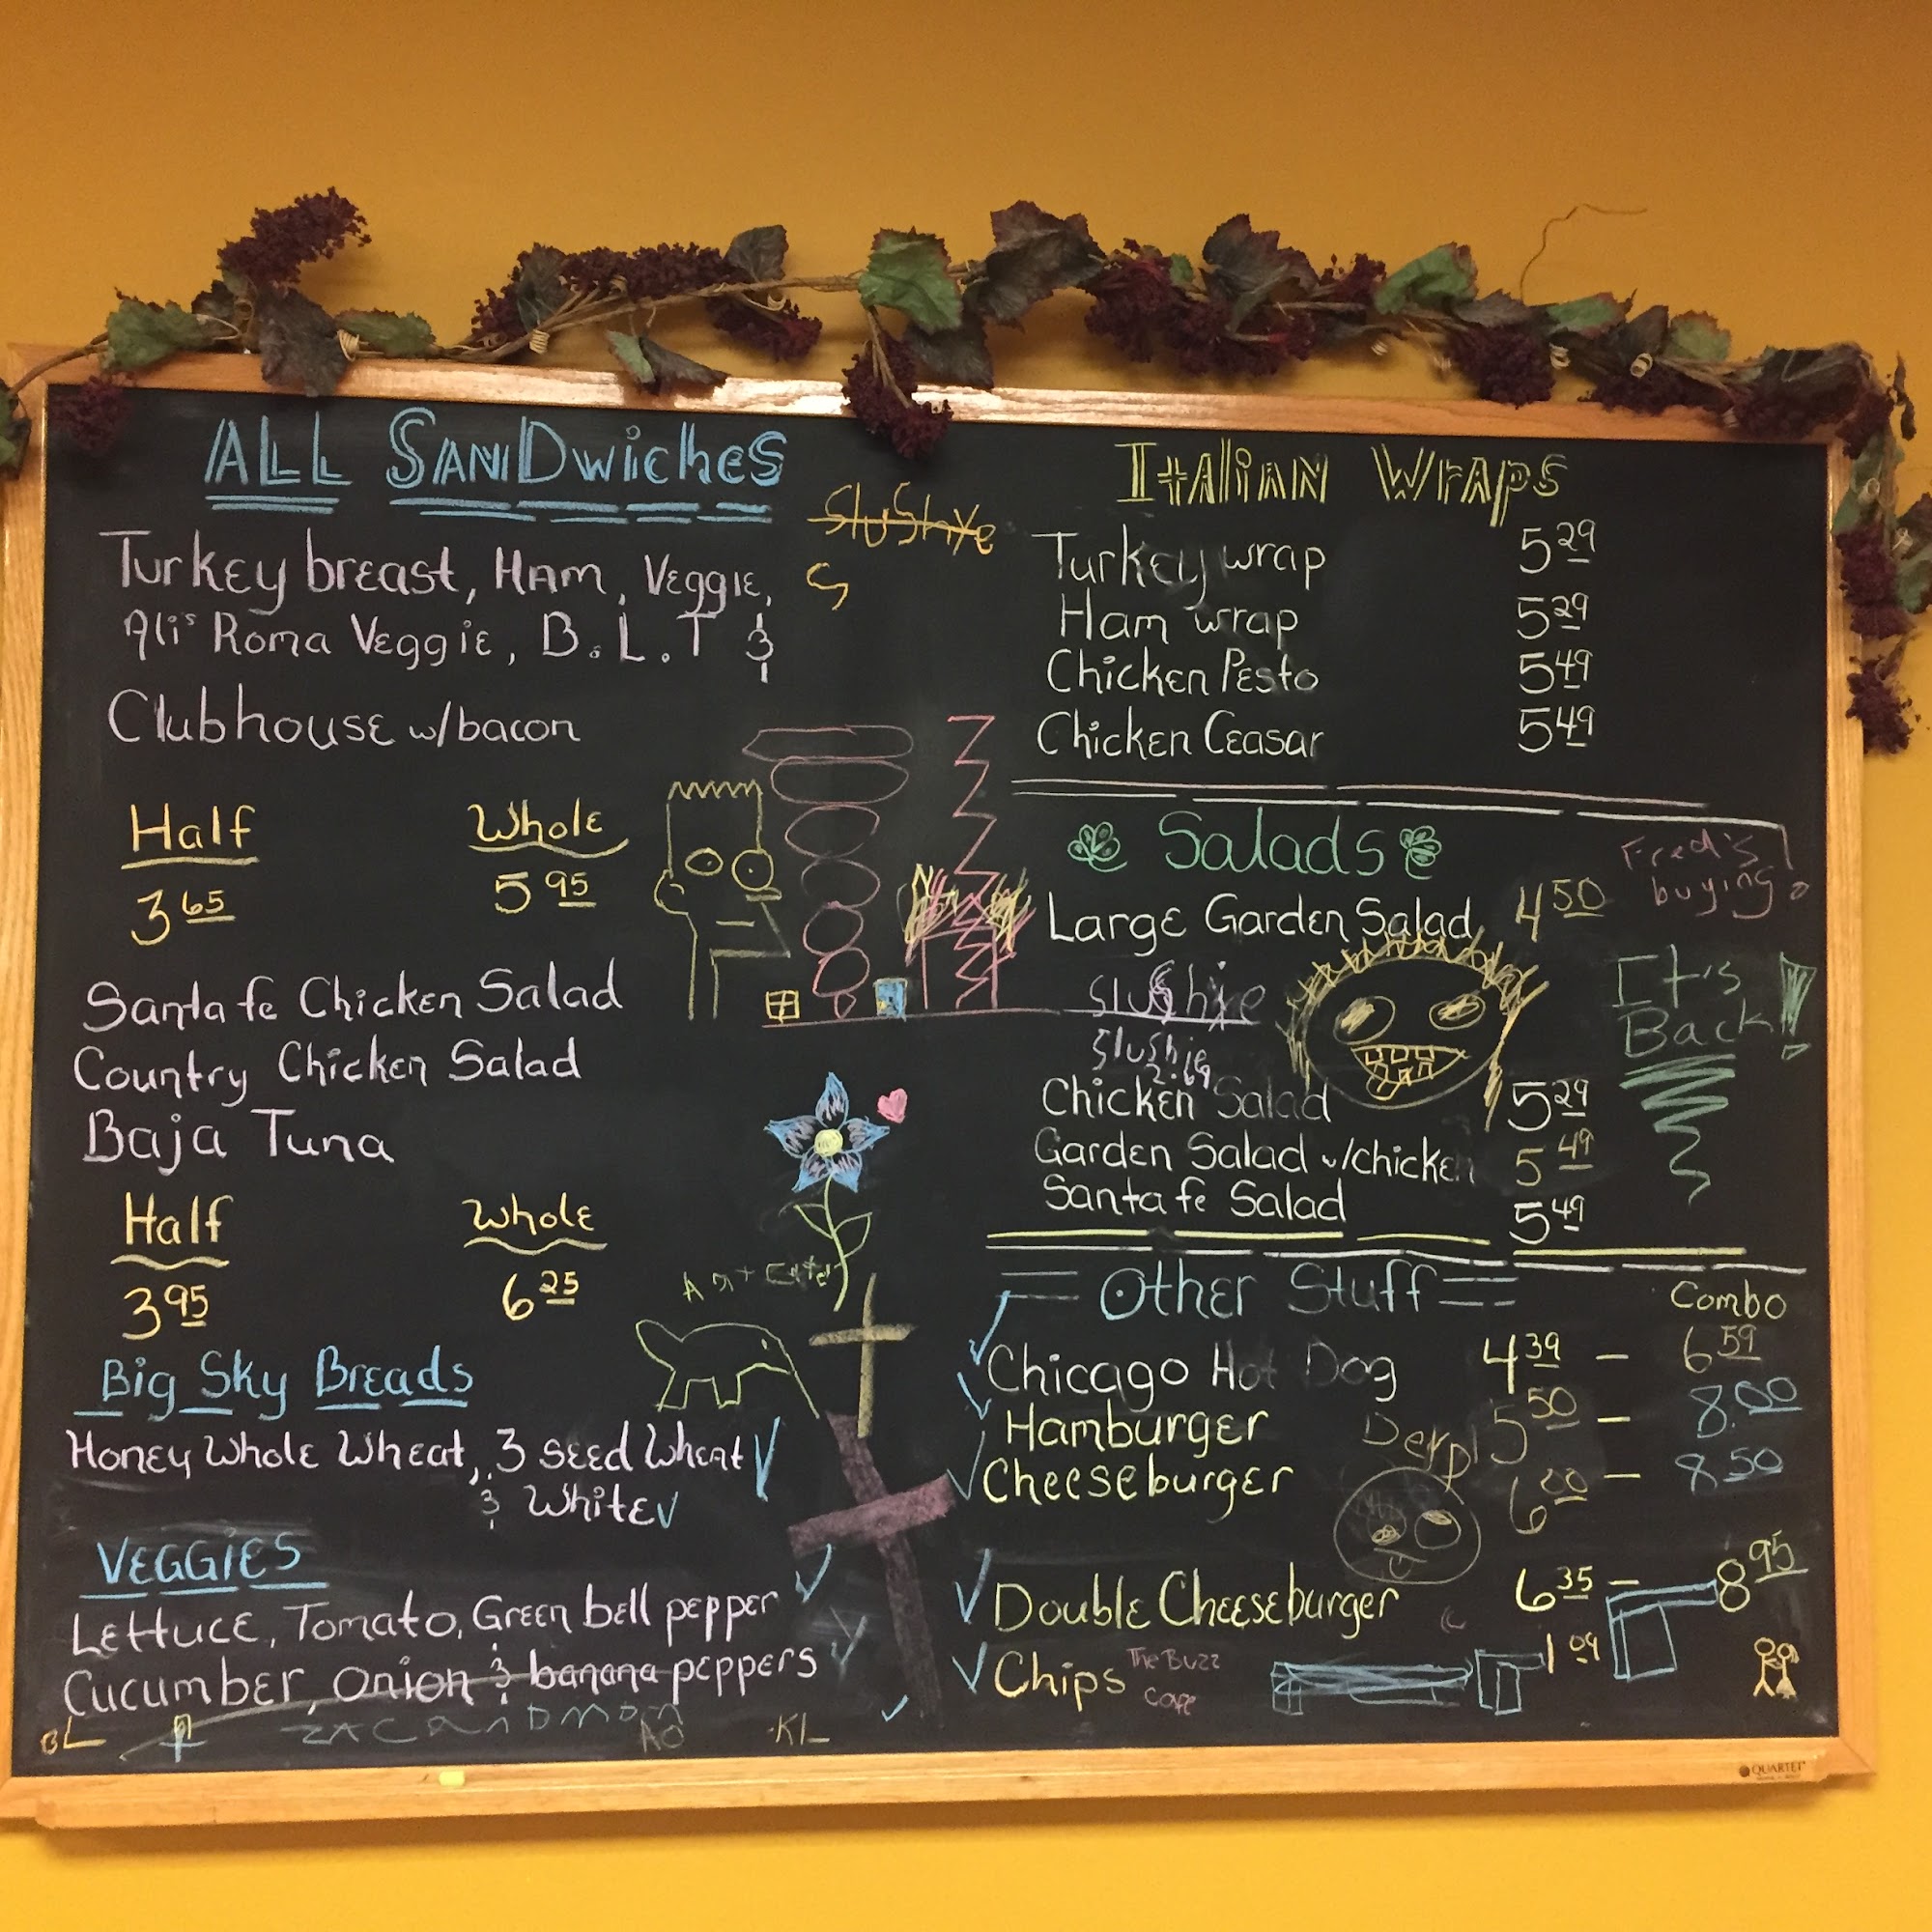 ALL SANDwiches
Turkey breast, Ham, Veggie,
Ali's Roma Veggie, B.L.T &
Clubhouse w/bacon
Half Whole
3 65 5 95
Santa fe Chicken Salad
Country Chicken Salad
Baja Tuna
Half Whole
3 95 6 25
Big Sky Breads
Honey Whole Wheat, 3 seed Wheat
& White
VEGGiES
Lettuce, Tomato, Green bell pepper
Cucumber, onion & banana peppers
ZAC AND MOM
BL
AO
KL
SluShYe
S
Ant Eater
Italian Wraps
Turkey wrap 5 29
Ham wrap 5 29
Chicken Pesto 5 49
Chicken Ceasar 5 49
Salads
Fred's
buying!
Large Garden Salad 4 50
Slushie
Slushie
2.69
It's
Back!
Chicken Salad 5 29
Garden Salad w/chicken 5 49
Santa fe Salad 5 49
Other Stuff Combo
Chicago Hot Dog 4 39 – 6 59
Hamburger 5 50 – 8.00
Derp!
Cheeseburger 6 00 – 8 50
Double Cheeseburger 6 35 – 8 95
Chips 1 09
The Buzz
Cafe
QUARTET